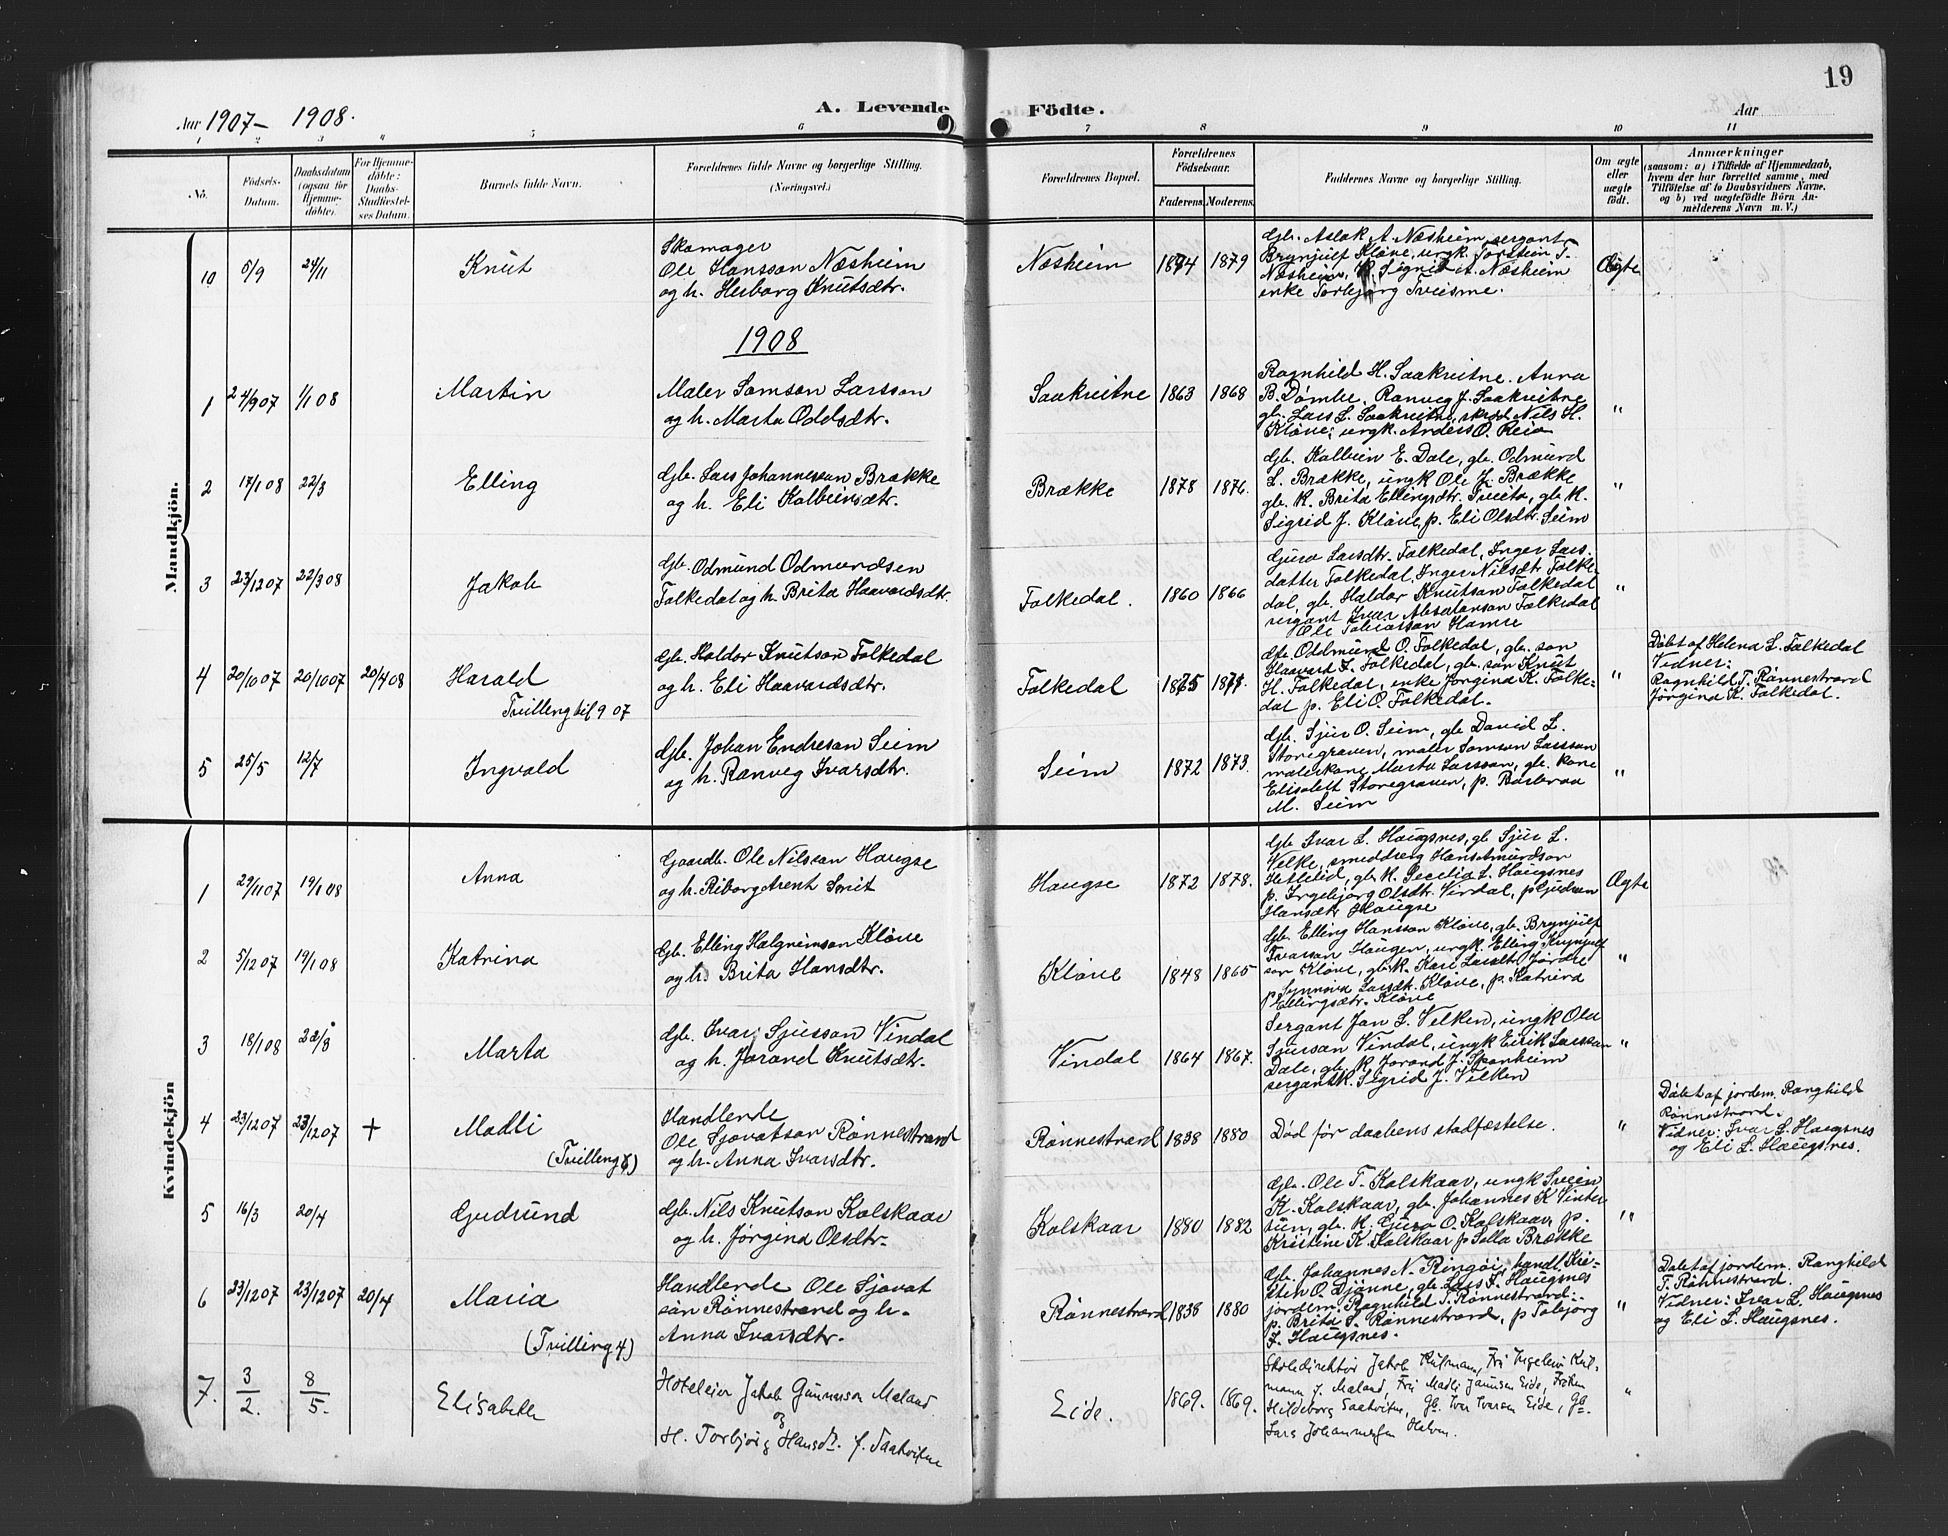 19
Aar 1907- 1908.
A. Levende Födte.
Aar
1 2 3 4 5 6 7 8 9 10 11
No.
Födsels-
Datum.
Daabsdatum
(ogsaa for
Hjemme-
döbte).
For Hjemme-
döbte:
Daabs-
Stadfæstel-
ses Datum.
Barnets fulde Navn.
Forældrenes fulde Navne og borgerlige Stilling.
(Næringsvei.)
Forældrenes Bopæl.
Forældrenes
Födselsaar.
Faderens. Moderens.
Faddernes Navne og borgerlige Stilling.
Om ægte
eller
uægte
födt.
Anmærkninger
(saasom: a) i Tilfælde af Hjemmedaab,
hvem der har forrettet samme, med
Tilföielse af to Daabsvidners Navne.
og b) ved uægtefödte Börn An-
melderens Navn m. V.)
Mandkjön.
10 5/9 24/11 Knut
Skomager
Ole Hansson Næsheim
og h. Herborg Knutsdtr.
Næsheim 1874 1879
Gb. Aslak A. Næsheim, sergant
Brynjulf Kløve, ungk. Torstein T.
Næsheim, p. Sigrid A. Næsheim
enke Torbjørg Tveisme.
Ægte
1908
1 24/9 07 1/1 08 Martin
Maler Samson Larsson
og h. Marta Oddsdtr.
Saakvitne 1863 1868
Ragnhild H. Saakvitne. Anna
B. Dømbe, Ranveg J. Saakvitne
gb. Lars L. Saakvitne, skræd. Nils H.
Kløve, ungk. Anders O. Reia
"
2 17/1 08 22/3 Elling
Gb. Lars Johannesson Brække
og h. Eli Kolbeinsdtr.
Brække 1878 1876.
Gb. Kolbein E. Dale, gb. Odmund
L. Brække, ungk Ole J. Brække
gb. k. Brita Ellingsdtr. Tveita, gb. k.
Sigrid J. Kløve, p. Eli Olsdtr. Seim
"
3 23/12 07 22/3 08 Jakob
Gb. Odmund Odmundsen
Folkedal og h. Brita Haavardsdtr.
Folkedal. 1860 1866
Guro Larsdtr. Folkedal, Inger Lars-
datter Folkedal, Inger Nilsdtr Folke-
dal, gb. Haldor Knutson Folkedal
sergant Ivar Absalonson Folkedal
Ole Tobiasson Hamre
"
4 20/10 07 20/10 07 20/4 08 Harald
Tvilling til 9 07
Gb. Haldor Knutson Folkedal
og h. Eli Haavardsdtr.
Folkedal 1875 1871
Gb. Oddmund O. Folkedal, gb. søn
Haavard J. Folkedal, gb. søn Knut
H. Folkedal, enke Jørgina K. Folke-
dal p. Eli O. Folkedal.
"
Døbt af Helena L. Folkedal
Vidner:
Ragnhild T. Rønnestrand
Jørgina K. Folkedal.
5 25/5 12/7 Ingvald
Gb. Johan Endreson Seim
og h. Ranveg Ivarsdtr.
Seim 1872 1873.
Gb. Sjur O. Seim, gb David L.
Storegraven, maler Samson Larsson
malerkone Marta Larsson, gb. kone
Elisabett Storegraven, p. Barbraa
M. Seim
"
Kvindekjön
1 29/11 07 19/1 08 Anna
Gaardb. Ole Nilsson Haugse
og h. Riborg Arent Smit
Haugse 1872 1878.
Gb Ivar L. Haugsnes, gb Sjur L.
Velke, smeddreng Hans Amundson
Hetletid, gb. k. Cecilia L. Haugsnes
p. Ingebjørg Olsdtr. Vindal, p Gudrun
Hansdtr Haugse
Ægte
2 5/12 07 19/1 08 Katrina
Gb. Elling Halgrimson Kløve
og h. Brita Hansdtr.
Kløve 1848 1865
Gb. Elling Hansson Kløve, gb. Brynjulf
Tvarson Haugen, ungk. Elling Brynjulf
son Kløve, gb. k. Kari Larsdtr Jørdre
p. Synnøva Larsdtr. Kløve, p. Katrina
Ellingsdtr. Kløve
"
3 18/1 08 22/3 Marta
Gb. Ivar Sjursson Vindal
og h. Jorand Knutsdtr.
Vindal 1864 1867.
Sergant Jan L. Velken, ungk Ole
Sjurson Vindal, ungk Eirik Larsson
Dale, gb. k. Jorand J. Spanheim
sergantk. Sigrid J. Vilken
"
4 23/12 07 23/12 07 + Madli
(Tvilling 6)
Handlende
Ole Sjovatson Rønnestrand
og h. Anna Ivarsdtr.
Rønnestrand 1838 1880
Død før daabens stadfæstelse.
"
Døbt af jordem. Ranghild
Rønnestrand.
Vidner: Ivar L. Haugsnes
og Eli L. Haugsnes.
5 16/3 20/4 Gudrund
Gb. Nils Knutson Kolskaar
og h. Jørgina Olsdtr.
Kolskaar 1880 1882
Gb. Ole T. Kolskaar, ungk Svein
K. Kolskaar, gb. Johannes K Vinter-
tun, gb. k. Guro O. Kolskaar, p.
Kristine K. Kolskaar p Salla Brække
"
6 23/12 07 23/12 07 20/4 Maria
(Tvilling 4)
Handlende Ole Sjovat
søn Rønnestrand og h.
Anna Ivarsdtr.
Rønnestrand 1838 1880
Gb. Johannes N. Ringøi, handl. Kri-
sten O. Djønne, gb. Lars L. Haugsnes
jordem. Ragnhild T. Rønnestrand.
p. Brita S. Rønnestrand, p Tobjorg
L. Haugsnes.
"
Døbt af jordem. Ranghild
T. Rønnestrand.
Vidner: Ivar L. Haugsnes
og Eli L. Haugsnes.
7. 3/2. 8/5. Elisabeth
Hoteleier Jakob Gunnarson Meland
og
H. Torbjørg Hansdtr. f. Saakvitne
Eide. 1869. 1869.
Skoledirektør Jakob Kulmann, Fru Ingeleiv Kul-
mann f. Meland, Fru Madli Jaunsen Eide, Frøken
Hildeborg Saakvitne, Gb. Iver Iversen Eide, Gb.
Lars Johannessen Halven.
"